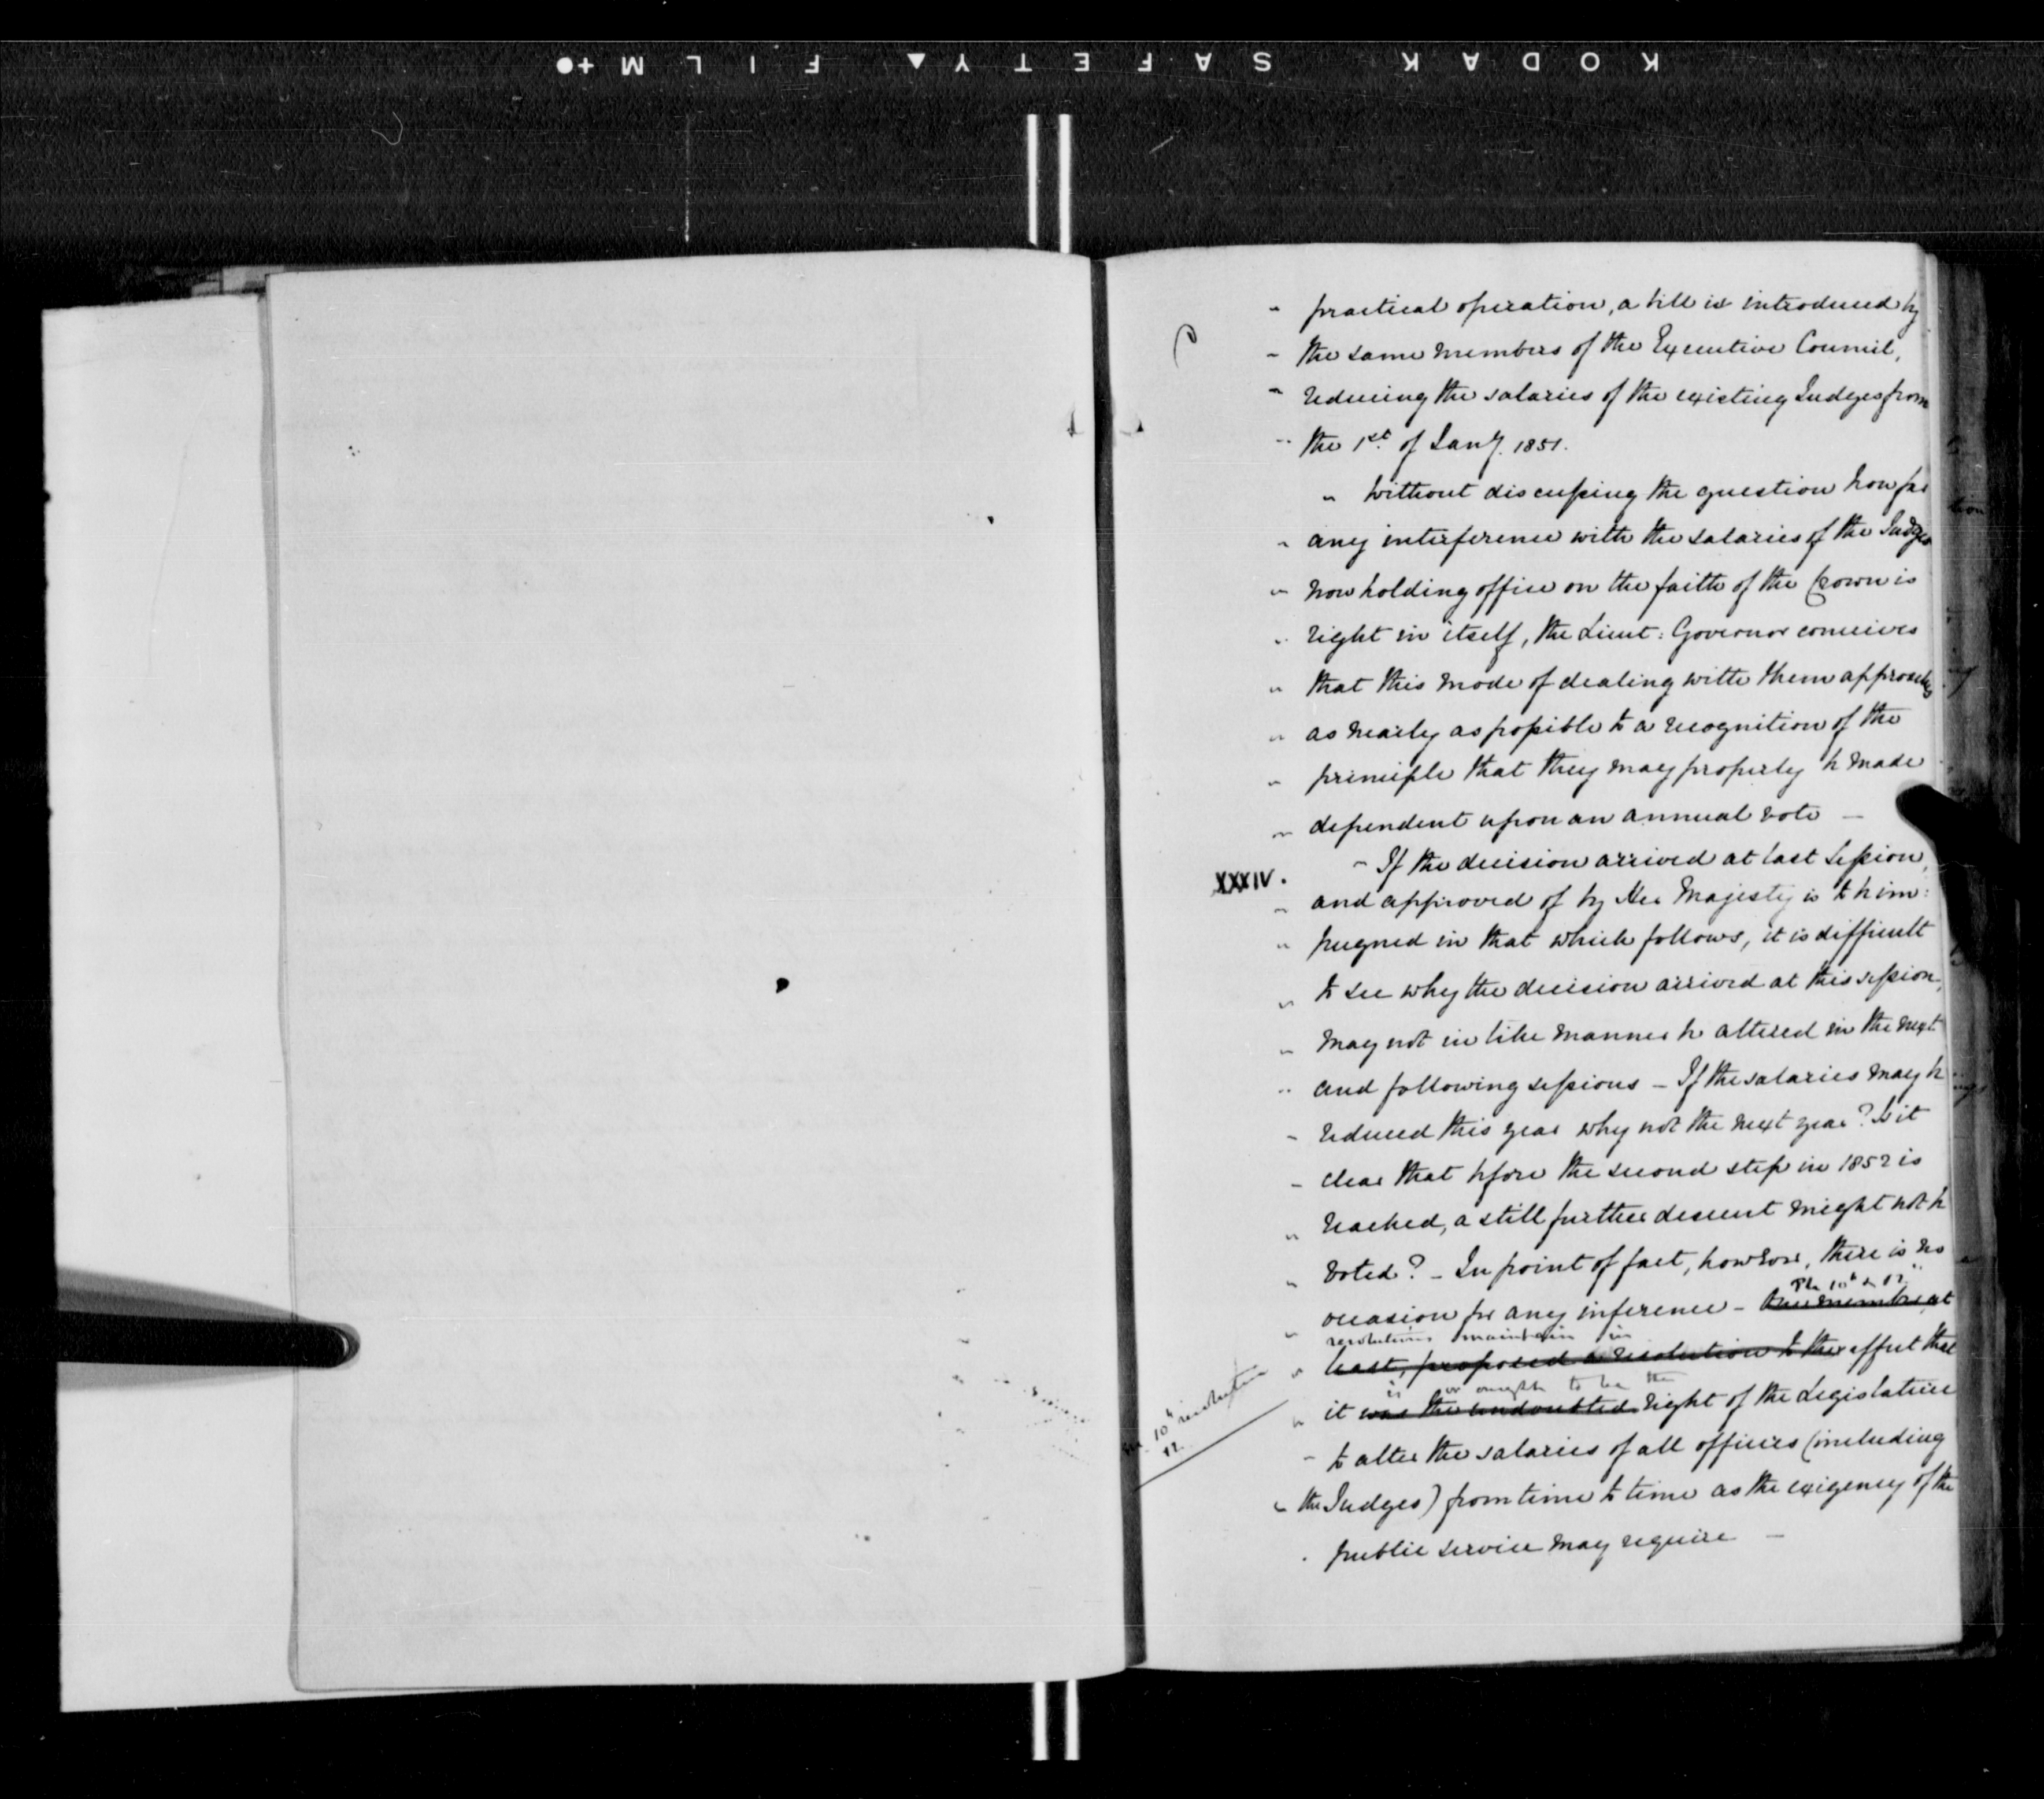 KODAK SAFETY▲ FILM+●
" practical operation, a bill is introduced by
" the same members of the Executive Council,
" reducing the salaries of the existing Judges from
" the 1st. of Jany. 1851.
" Without discussing the question how far
" any interference with the salaries of the Judges
" now holding office on the faith of the Crown is
" right in itself, the Lieut: Governor conceives
" that this mode of dealing with them approaches
" as nearly as possible to a recognition of the
" principle that they may properly be made
" dependent upon an annual vote —
XXXIV.
" If the decision arrived at last Session,
" and approved of by Her Majesty is to be im:
" pugned in that which follows, it is difficult
" to see why the decision arrived at this session,
" may not in like manner be altered in the next
" and following sessions — If the salaries may be
" reduced this year why not the next year? Is it
" clear that before the second step in 1852 is
" reached, a still further descent might not be
" voted? — In point of fact, however, there is no
The 10th & 12
" occasion for any inference — One member at
resolutions maintain in
" least, proposed a resolution to the effect that
is or ought to be the
" it was the undoubted right of the Legislature
10th resolution
12
" to alter the salaries of all officers (including
" the Judges) from time to time as the exigency of the
" public service may require —